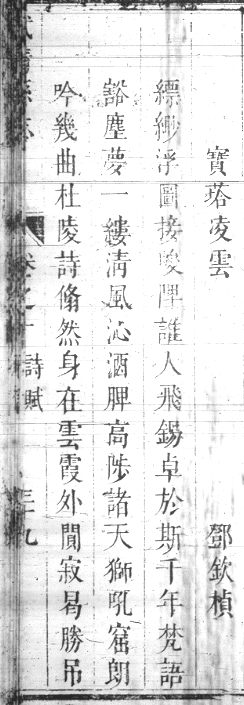 寶塔凌雲 鄧欽楨
縹緲浮圖接睃陴誰人飛錫卓於斯千年梵語
豁塵夢一縷清風沁酒脾高陟諸天獅吼窟朗
吟幾曲杜陵詩翛然身在雲霞外閒寂曷勝吊
卷之十 詩賦 三十九